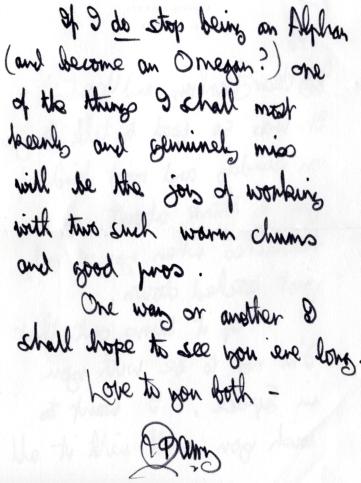 If I do stop being an Alphan
(and become an Omegan?) one
of the things I shall most
keenly and genuinely miss
will be the joy of working
with two such warm chums
and good pros.
One way or another I
shall hope to see you ere long.
Love to you both —
Barry